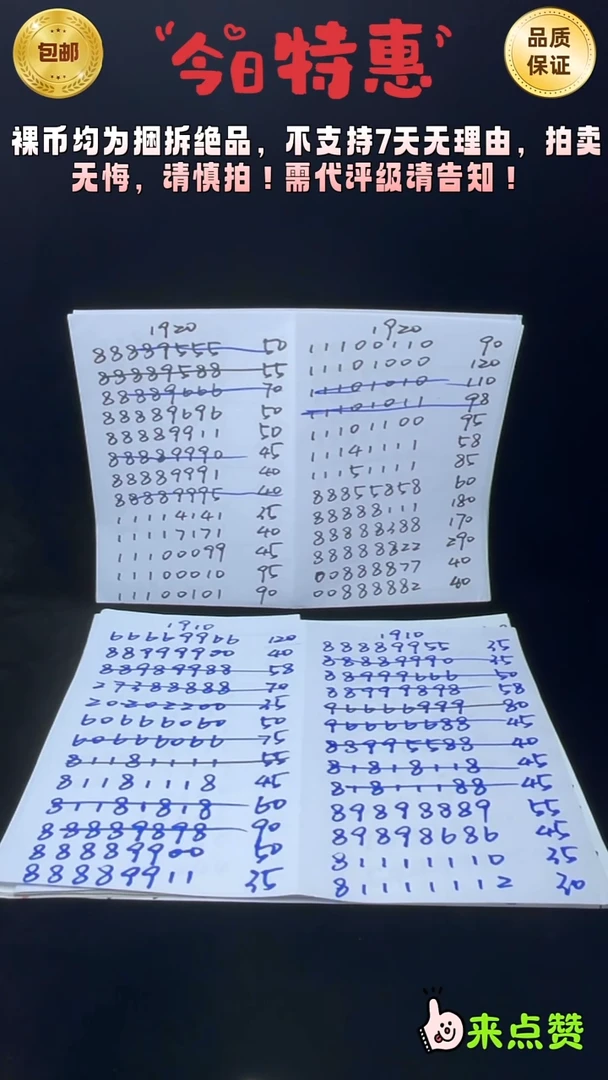 包邮
今日特惠
品质
保证
裸币均为捆拆绝品，不支持7天无理由，拍卖
无悔，请慎拍！需代评级请告知！
1920
88889555 50
88889588 55
88889666 70
88889696 50
88889911 50
88889990 45
88889991 40
88889995 40
11114141 35
11117171 40
11100099 45
11100010 95
11100101 90
1920
11100110 90
11101000 120
11101010 110
11101011 98
11101100 95
11141111 58
11151111 85
88855858 60
88888111 180
88888388 170
88888822 290
00888877 40
00888882 40
1910
66669966 120
88999900 40
88989988 58
27388888 70
20202200 35
60666060 50
60666066 75
81181111 55
81181118 45
81181818 60
88889898 90
88889900 50
88889911 35
1910
88889955 35
88889990 35
88999666 50
88999898 58
96666999 80
96666688 45
88995588 40
81818118 45
81811188 45
89898889 55
89898686 45
81111110 35
81111112 30
来点赞